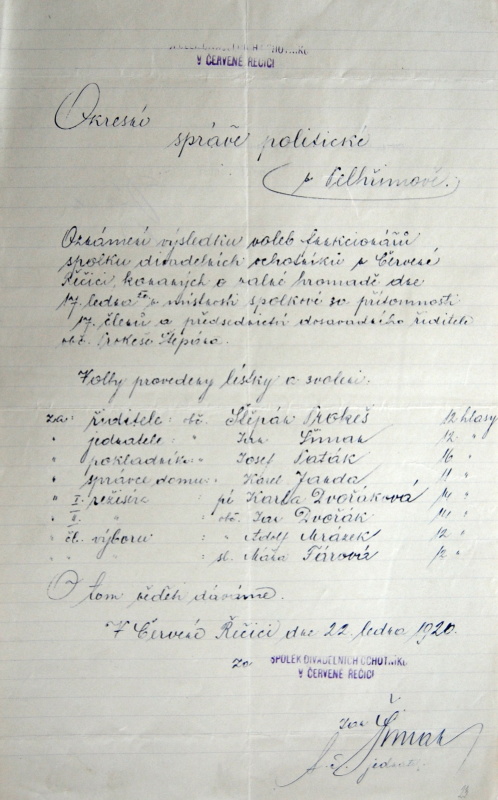 SPOLEK DIVADELNÍCH OCHOTNÍKŮ
V ČERVENÉ ŘEČICI
Okresní
správě politické
v Pelhřimově.
Oznámení výsledku voleb funkcionářů
spolku divadelních ochotníků v Červené
Řečici, konaných o valné hromadě dne
17. ledna v místnosti spolkové za přítomnosti
17. členů a předsednictví dosavadního ředitele
obč. Prokeše Štěpána.
Volby provedeny lístky a zvoleni:
za: ředitele: obč. Štěpán Prokeš 12 hlasy
" jednatele: " Jan Šimak 12 "
" pokladníka: " Josef Paták 16 "
" správce domu: " Karel Janda 11 "
" I. režiséra : pí Karla Dvořáková 14 "
" II. " : obč. Jan Dvořák 14 "
" čl. výboru : " Adolf Mrázek 12 "
" " : sl. Máňa Tárová 12 "
O tom věděti dáváme.
V Červené Řečici dne 22. ledna 1920.
za SPOLEK DIVADELNÍCH OCHOTNÍKŮ
V ČERVENÉ ŘEČICI
Jan Šimak
t. č. jednatel